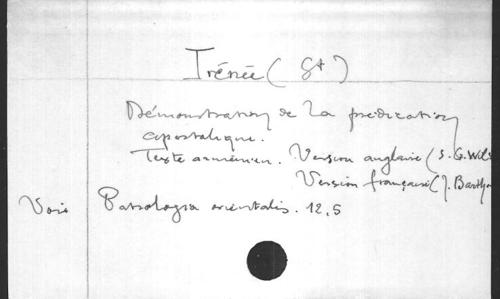 Irénée (St)
Démonstration de la prédication
apostolique.
Texte arménien. Version anglaise (S. G. Wils
Version française (J. Barthou
Voir Patrologia orientalis. 12,5